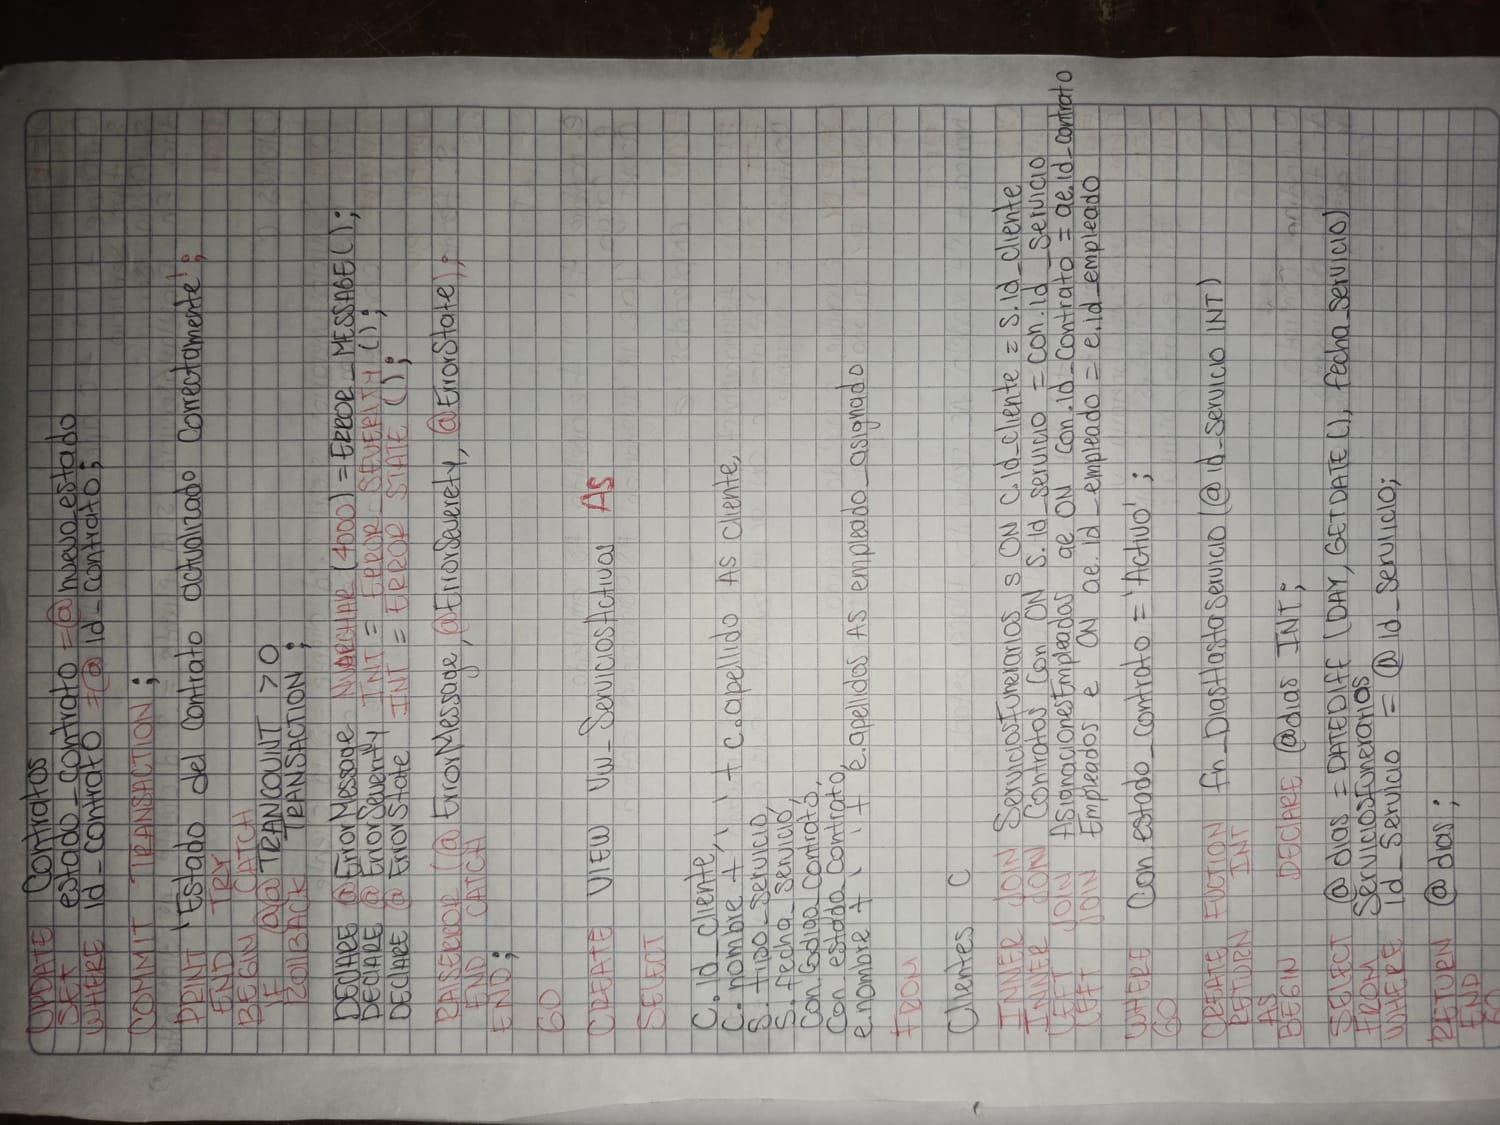 UPDATE Contratos
SET estado_contrato =@nuevo_estado
WHERE id_contrato =@id_contrato;
COMMIT TRANSACTION;
PRINT 'Estado del contrato actualizado correctamente';
END TRY
BEGIN CATCH
IF @@TRANCOUNT >0
ROllBACK TRANSACTION;
DECLARE @ErrorMessage NVARCHAR(4000)=ERROR_MESSAGE();
DECLARE @ErrorSeverity INT = ERROR_SEVERITY();
DECLARE @ErrorState INT = ERROR STATE ();
RAISERROR (@ErrorMessage,@ErrorSeverety, @ErrorState);
END CATCH
END;
GO
CREATE VIEW Vw_ServiciosActivos As
SELECT
C.id_cliente,
C.nombre + ' ' + c.apellido AS cliente,
S.tipo_servicio,
S.fecha_servicio,
Con.codigo_contrato,
Con.estado_contrato,
e.nombre + ' ' + e.apellidos AS empleado_asignado
FROM
Clientes C
INNER JOIN ServiciosFunerarios s ON C.id_cliente = s.id_cliente
INNER JOIN Contratos Con ON S.id_servicio = con.id_servicio
LEFT JOIN AsignacionesEmpleados ae ON con.id_contrato = ae.id_contrato
LEFT JOIN Empleados e ON ae.id_empleado = e.id_empleado
WHERE Con.estado_contrato = 'Activo';
GO
CREATE FUCTION fn_DiasHastaServicio (@id_servicio INT)
RETURN INT
AS
BEGIN DECLARE @dias INT;
SELECT @dias = DATEDIFF (DAY, GETDATE(), fecha_servicio)
FROM ServiciosFunerarios
WHERE id_servicio = @id_servicio;
RETURN @dias;
END
GO